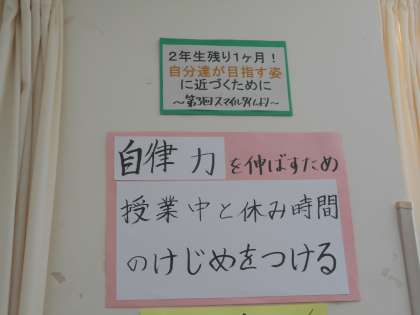 2年生残り1ヶ月!
自分達が目指す姿
に近づくために
～第3回スマイルタイムより～
自律力を伸ばすため
授業中と休み時間
のけじめをつける